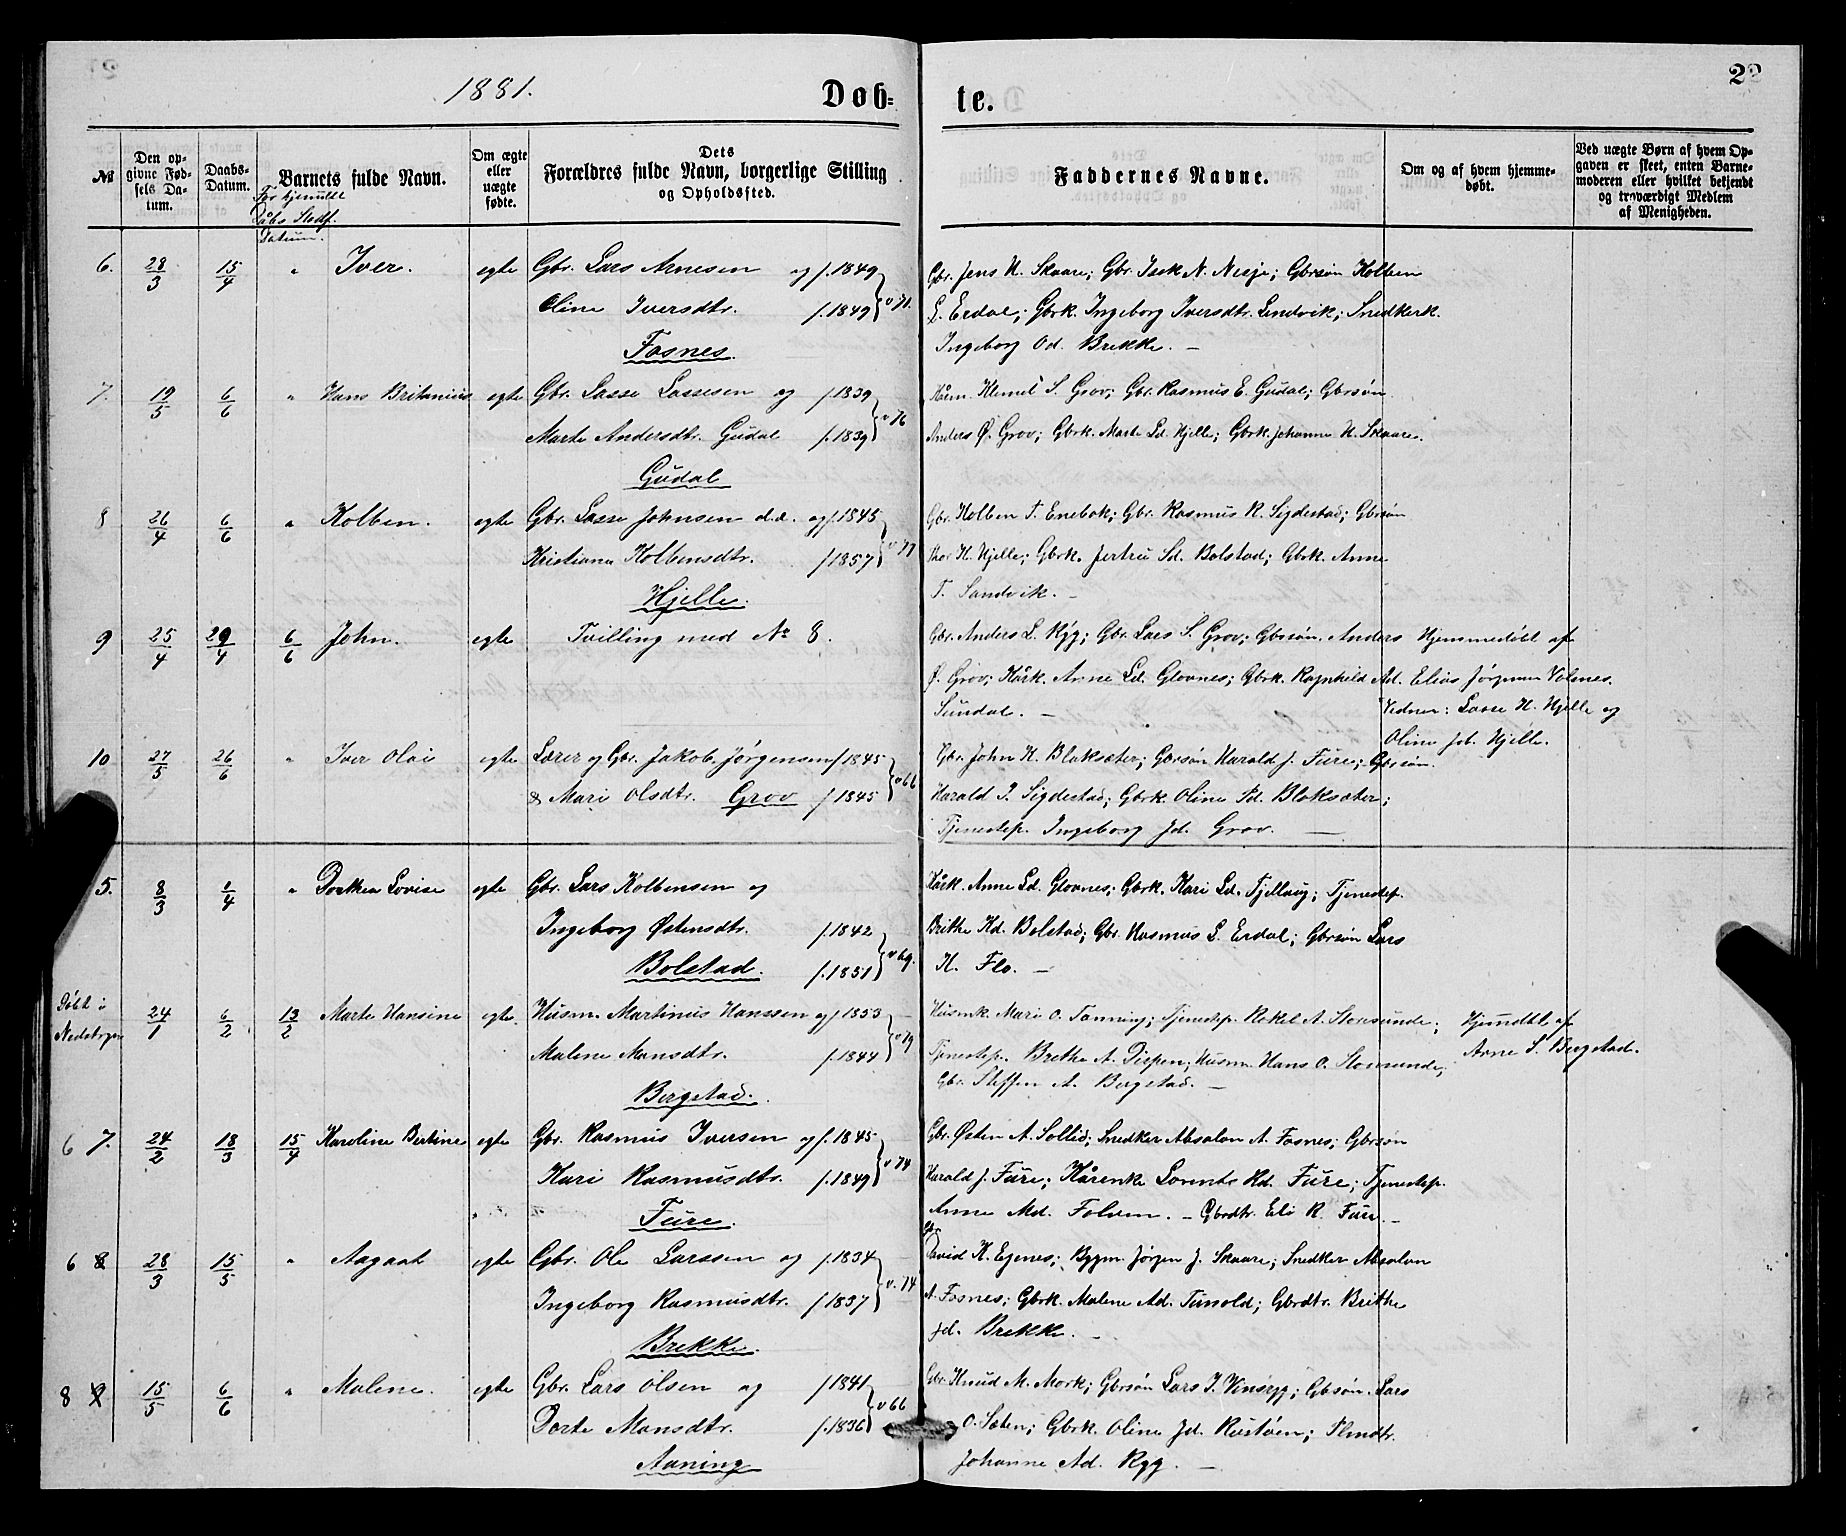 1881.
Døb-
te.
22
№
Den opgivne Fødsels Datum.
Daabs-Datum.
For hjemdte Dåbs Stadf. Datum.
Barnets fulde Navn.
Om ægte eller uægte fødte.
Dets Forældres fulde Navn, borgerlige Stilling og Opholdssted.
Faddernes Navne.
Om og af hvem hjemme-døbt.
Ved uægte Børn af hvem Opgaven er skeet, enten Barnemoderen eller hvilket bekjendt og troværdigt Medlem af Menigheden.
6. 28/3 15/4 " Iver. egte Gbr. Lars Arnesen og f. 1849
Oline Iversdtr. f. 1849 v 71.
Fosnes.
Gbr. Jens N. Skaare; Gbr. Isak N. Nesje; Gbrsøn Kolben
L. Erdal; Gbrk. Ingeborg Iversdtr. Lendvik; Snedkerk.
Ingeborg Od. Brekke. —
7. 19/5 6/6 " Hans Britanius egte Gbr. Lasse Lassesen og f. 1839
Marte Andersdtr. Gudal f. 1839 v 76
Gudal
Kårm. Klemet S. Grov; Gbr. Rasmus E. Gudal; Gbrsøn
Anders Ø. Grov; Gbrk. Marte Ld. Hjelle; Gbrk. Johanne N. Skaare.
8 26/4 6/6 " Kolben. egte Gbr. Lasse Johnsen d.e. og f. 1845
Kristiane Kolbensdtr. f. 1857 v 77
Hjelle.
Gbr. Kolben T. Enebok; Gbr. Rasmus R. Sigdestad; Gbrsøn
Thor H. Hjelle; Gbrk. Jertru Sd. Bolstad; Gbrk. Anne
T. Sandvik. —
9 25/4 29/4 6/6 John. egte Tvilling med № 8.
Gbr. Anders L. Ryg; Gbr. Lars S. Grov; Gbrsøn Anders
Ø. Grov; Kårk. Anne Ld. Glovnes; Gbrk. Ragnhild Ad.
Sundal. —
Hjemmedøbt af
Elias Jørgensen Volnes.
Vidner: Lasse H. Hjelle og
Oline Jd. Hjelle.
10 27/5 26/6 " Iver Olai egte Lærer og Gbr. Jakob Jørgensen f. 1845
& Mari Olsdtr. Grov f. 1845 v 66
Gbr. John K. Bloksæter; Gbrsøn Harald J. Fure; Gbrsøn.
Harald I. Sigdestad; Gbrk. Oline Pd. Bloksæter;
Tjenestep. Ingeborg Jd. Grov. —
5. 8/3 1/4 " Dorthea Lovise egte Gbr. Lars Kolbensen og
Ingeborg Østensdtr. f. 1842
Bolstad. f. 1851 v 69.
Kårk. Anne Ld. Glovnes; Gbrk. Kari Ld. Tjellaug; Tjenestep.
Brithe Kd. Bolstad; Gbr. Rasmus L. Erdal; Gbrsøn Lars
K. Flo. —
Døbt i
24/1 6/2 13/2 Marte Hansine egte. Husm. Martinus Hanssen og f. 1853
Malene Monsdtr. f. 1844 v 79
Bergstad.
Husmk. Mari O. Tonning; Tjenestep. Rakel A. Storesunde;
Tjenestep. Brethe A. Dispen; Husm. Hans O. Storesunde;
Gbr. Steffen A. Bergstad. —
Hjemdbt af
Arne S. Bergstad.
6 7. 24/2 18/3 15/4 Karoline Bertine egte Gbr. Rasmus Iversen og f. 1845
Kari Rasmusdtr. f. 1849 v 74
Fure.
Gbr. Østen A. Sollid; Snedker Absalon A. Fosnes; Gbrsøn
Harald J. Fure; Kårenke Lorents Rd. Fure; Tjenestep.
Anne Md. Folven. — Gbrdtr. Eli R. Fure. —
6 8 28/3 15/5 " Aagaat egte Gbr. Ole Larssen og f. 1834
Ingeborg Rasmusdtr. f. 1837 v. 74
Brekke.
David K. Egenes; Bygm. Jørgen J. Skaare; Snedker Absalon
A. Fosnes; Gbrk. Malene Ad. Tunold; Gbrdtr. Brithe
Jd. Brekke. —
8 9 15/5 6/6 " Malene. egte Gbr. Lars Olsen og f. 1841
Dorte Monsdtr. f. 1836 v 66
Aaning
Gbr. Knud M. Mork; Gbrsøn Lars I. Vinsryg; Gbrsøn. Lars
O. Sæten; Gbrk. Oline Jd. Rustøen; Plmdtr.
Johanne Ad. Ryg. —